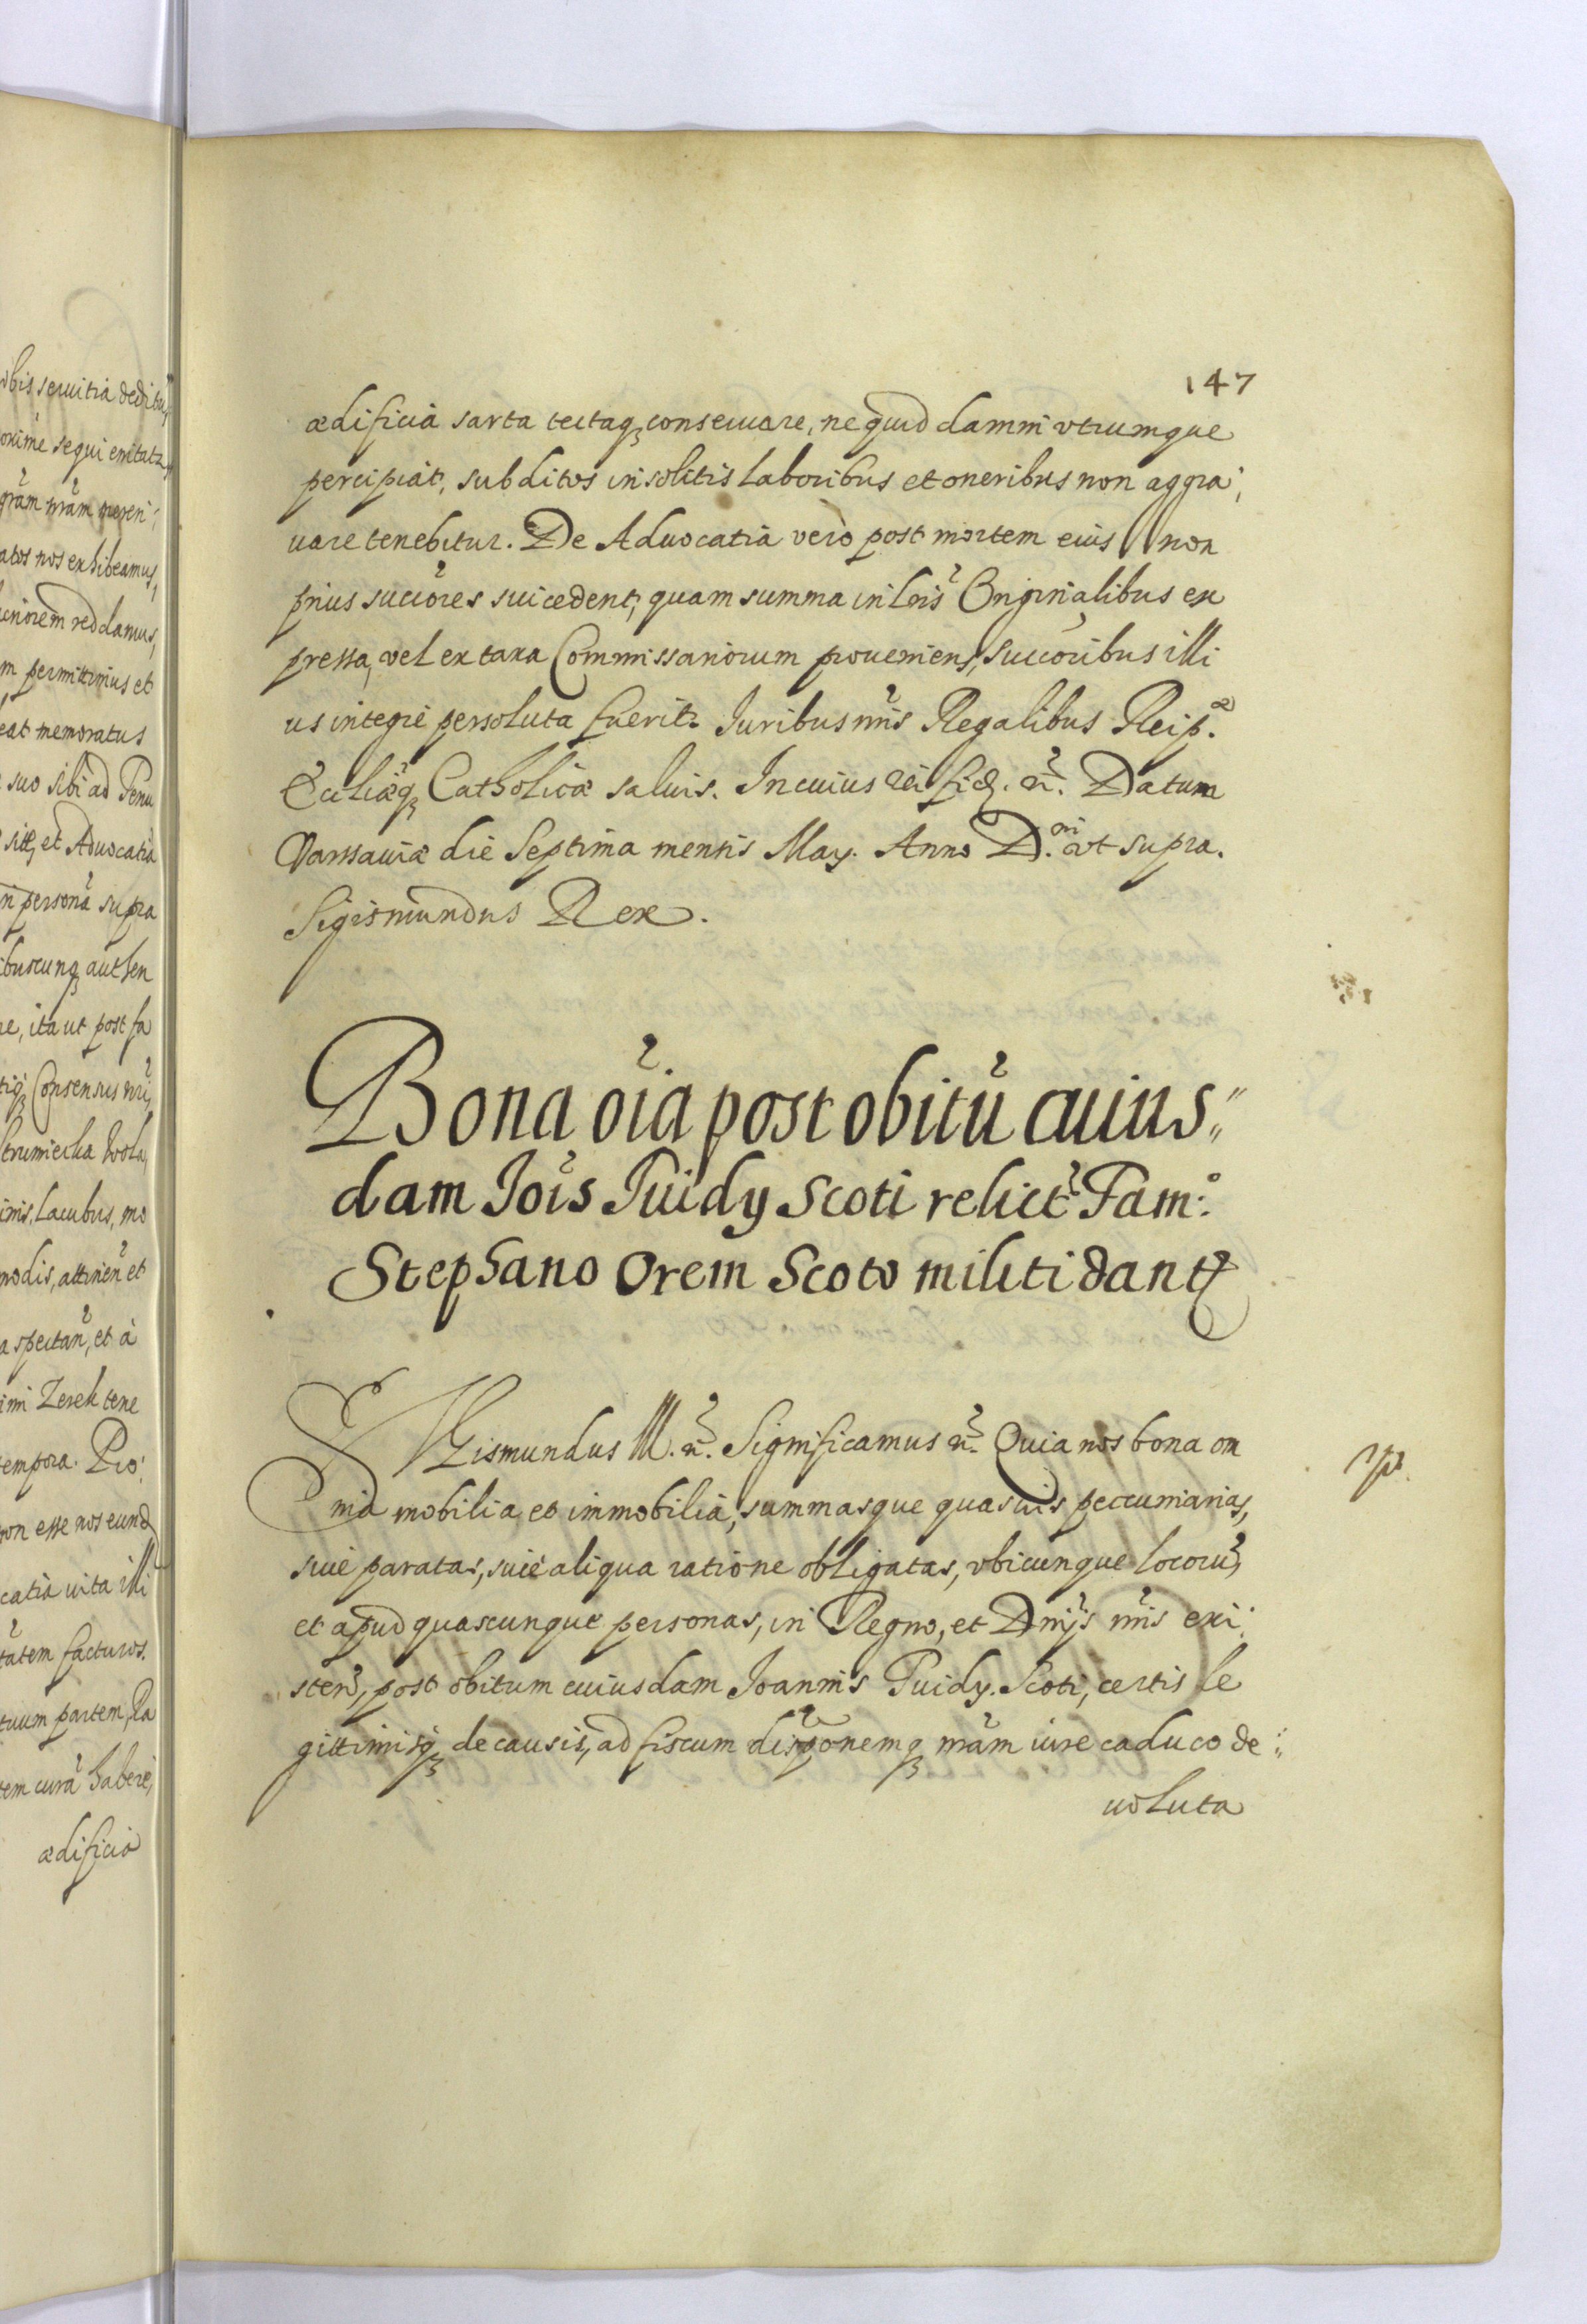 147
ædificia sarta tectaq₃ conseruare, ne quid damni vtrumque
percipiat, subditos insolitis laboribus et oneribus non aggra¡
uare tenebitur. De Aduocatia verò post mortem eius non
prius succōres suicedent, quam summa in lrīs Originalibus ex
pressa, vel ex taxa Commissariorum proueniens, succōribus illi
us integrè persoluta fuerit. Iuribus nrīs Regalibus Reip.æ
Eccliæq₃ Catholicæ saluis. In cuius rei fid. &c̃. Datum
Varssauiæ die Septima mensis May. Anno D.ni vt supra.
Sigismundus Rex.
Bona oīa post obitū cuius„
dam Iōis Tuidy Scoti relict̃ Fam:o
Stephano Orem Scoto militi dantꝛ
SIgismundus III. &c̃. Significamus &c̃. Quia nos bona om
nia mobilia et immobilia, summasque quasuis peccuniarias,
siue paratas, siue aliqua ratione obligatas, vbicunque locorū,
et apud quascunque personas, in Regno, et Dnijs nrīs exi:
steñ, post obitum cuiusdam Ioannis Tuidy Scoti, certis le
gittimisq₃ de causis, ad fiscum dispōnemq₃ nrām iure caduco de:
uoluta
obis seruitia
sequi
grām nrām
nos exhibeamus,
reddamus,
permittimus et
memoratus
suo sibi ad
et Aduocatia
persona supra
ita ut post fa
Consensus nrī,
Wola,
Lacubus, mo
modis, attineñ et
spectañ, et à
Zerek tene
tempora. Pro:
non esse nos eund
catia uita illi
facturos.
partem, Ra
curā habere,
ædificia